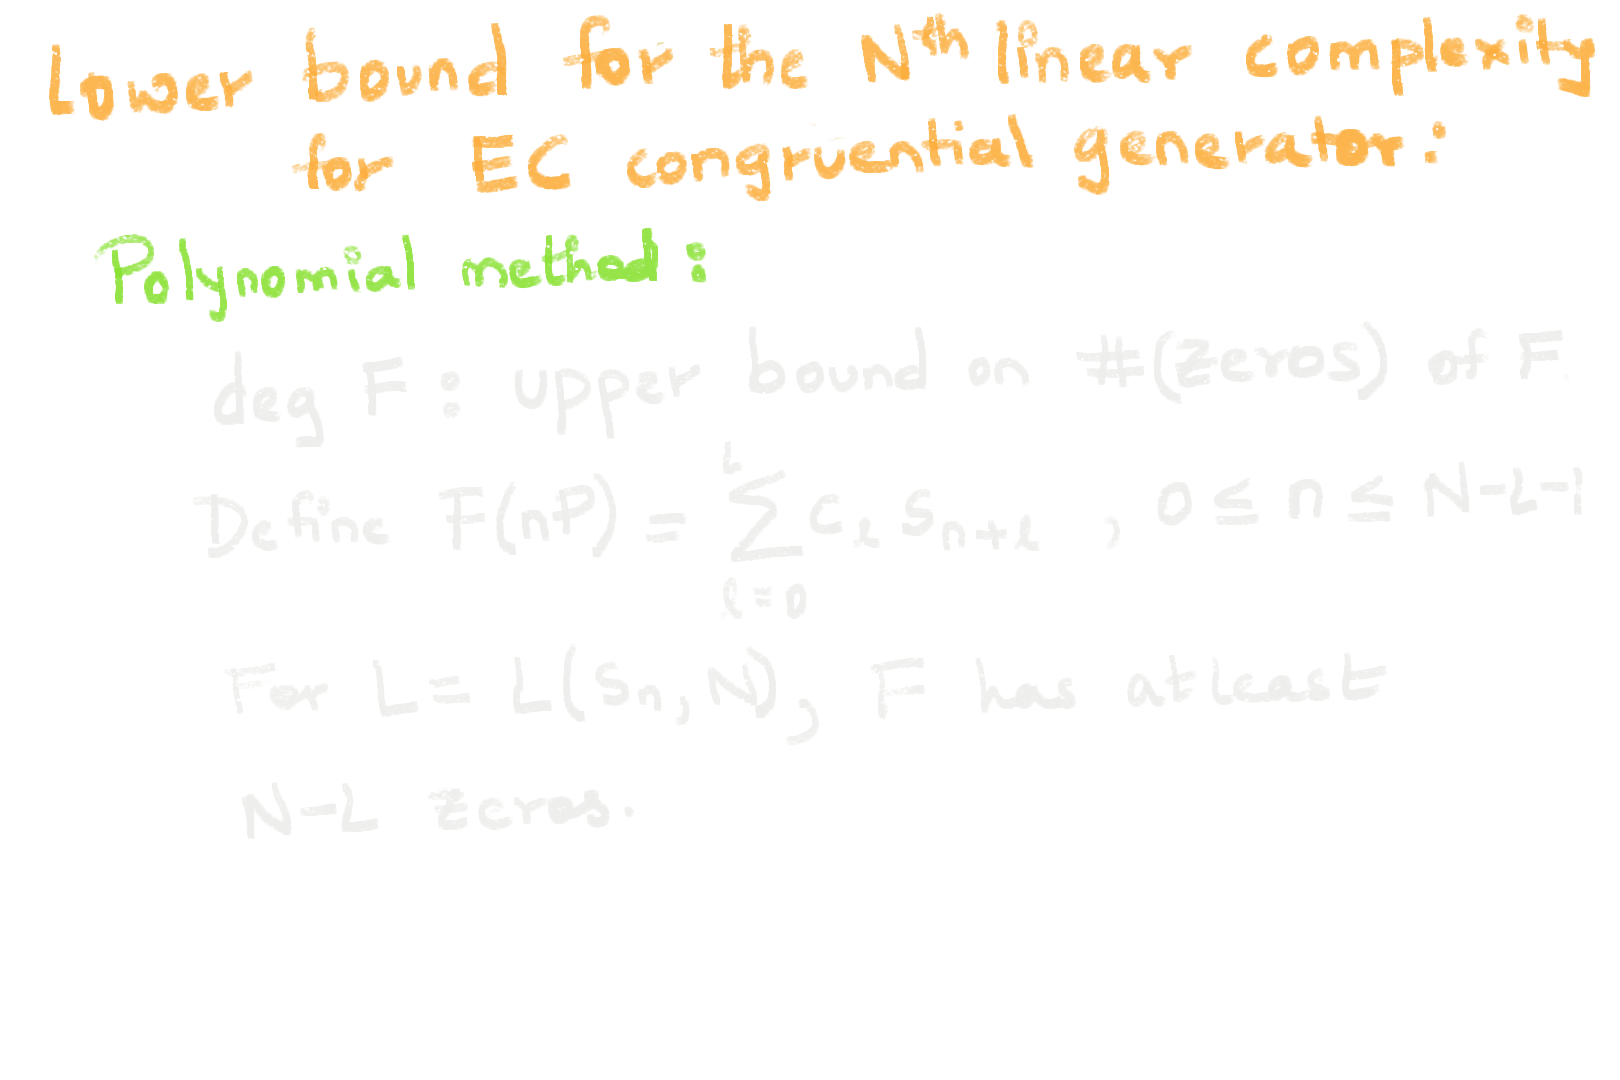 Lower bound for the Nth linear complexity
for EC congruential generator:
Polynomial method:
deg F: upper bound on #(zeros) of F.
Define F(nP) = ∑_{l=0}^{L} c_l s_{n+l} , 0 ≤ n ≤ N-L-1
For L = L(s_n, N), F has atleast
N-L zeros.